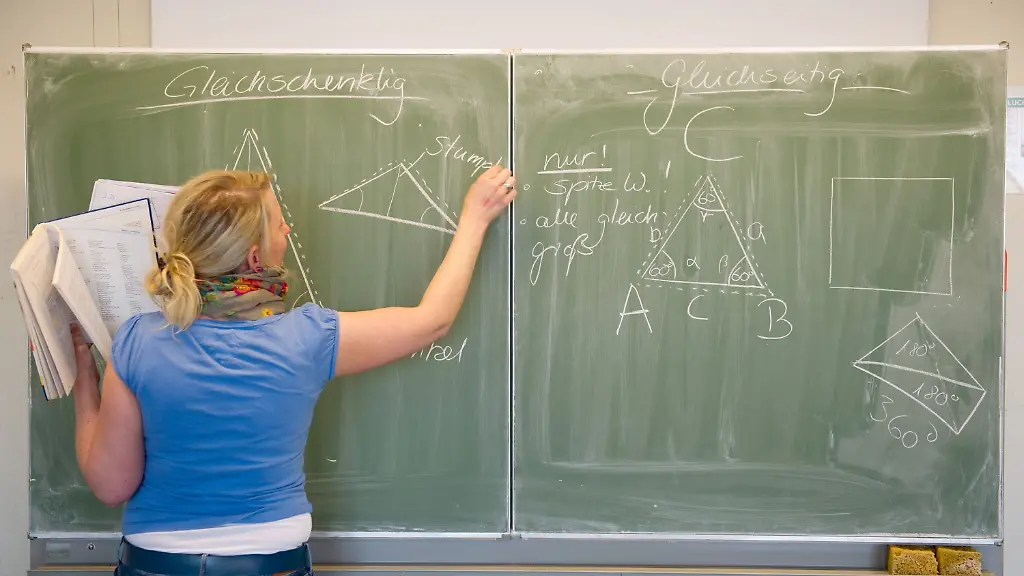 Gleichschenklig
Gleichseitig
C
nur!
spitze W.!
alle gleich
groß
60°
γ
b
a
60°
α
β
60°
A
C
B
180°
180°
360°